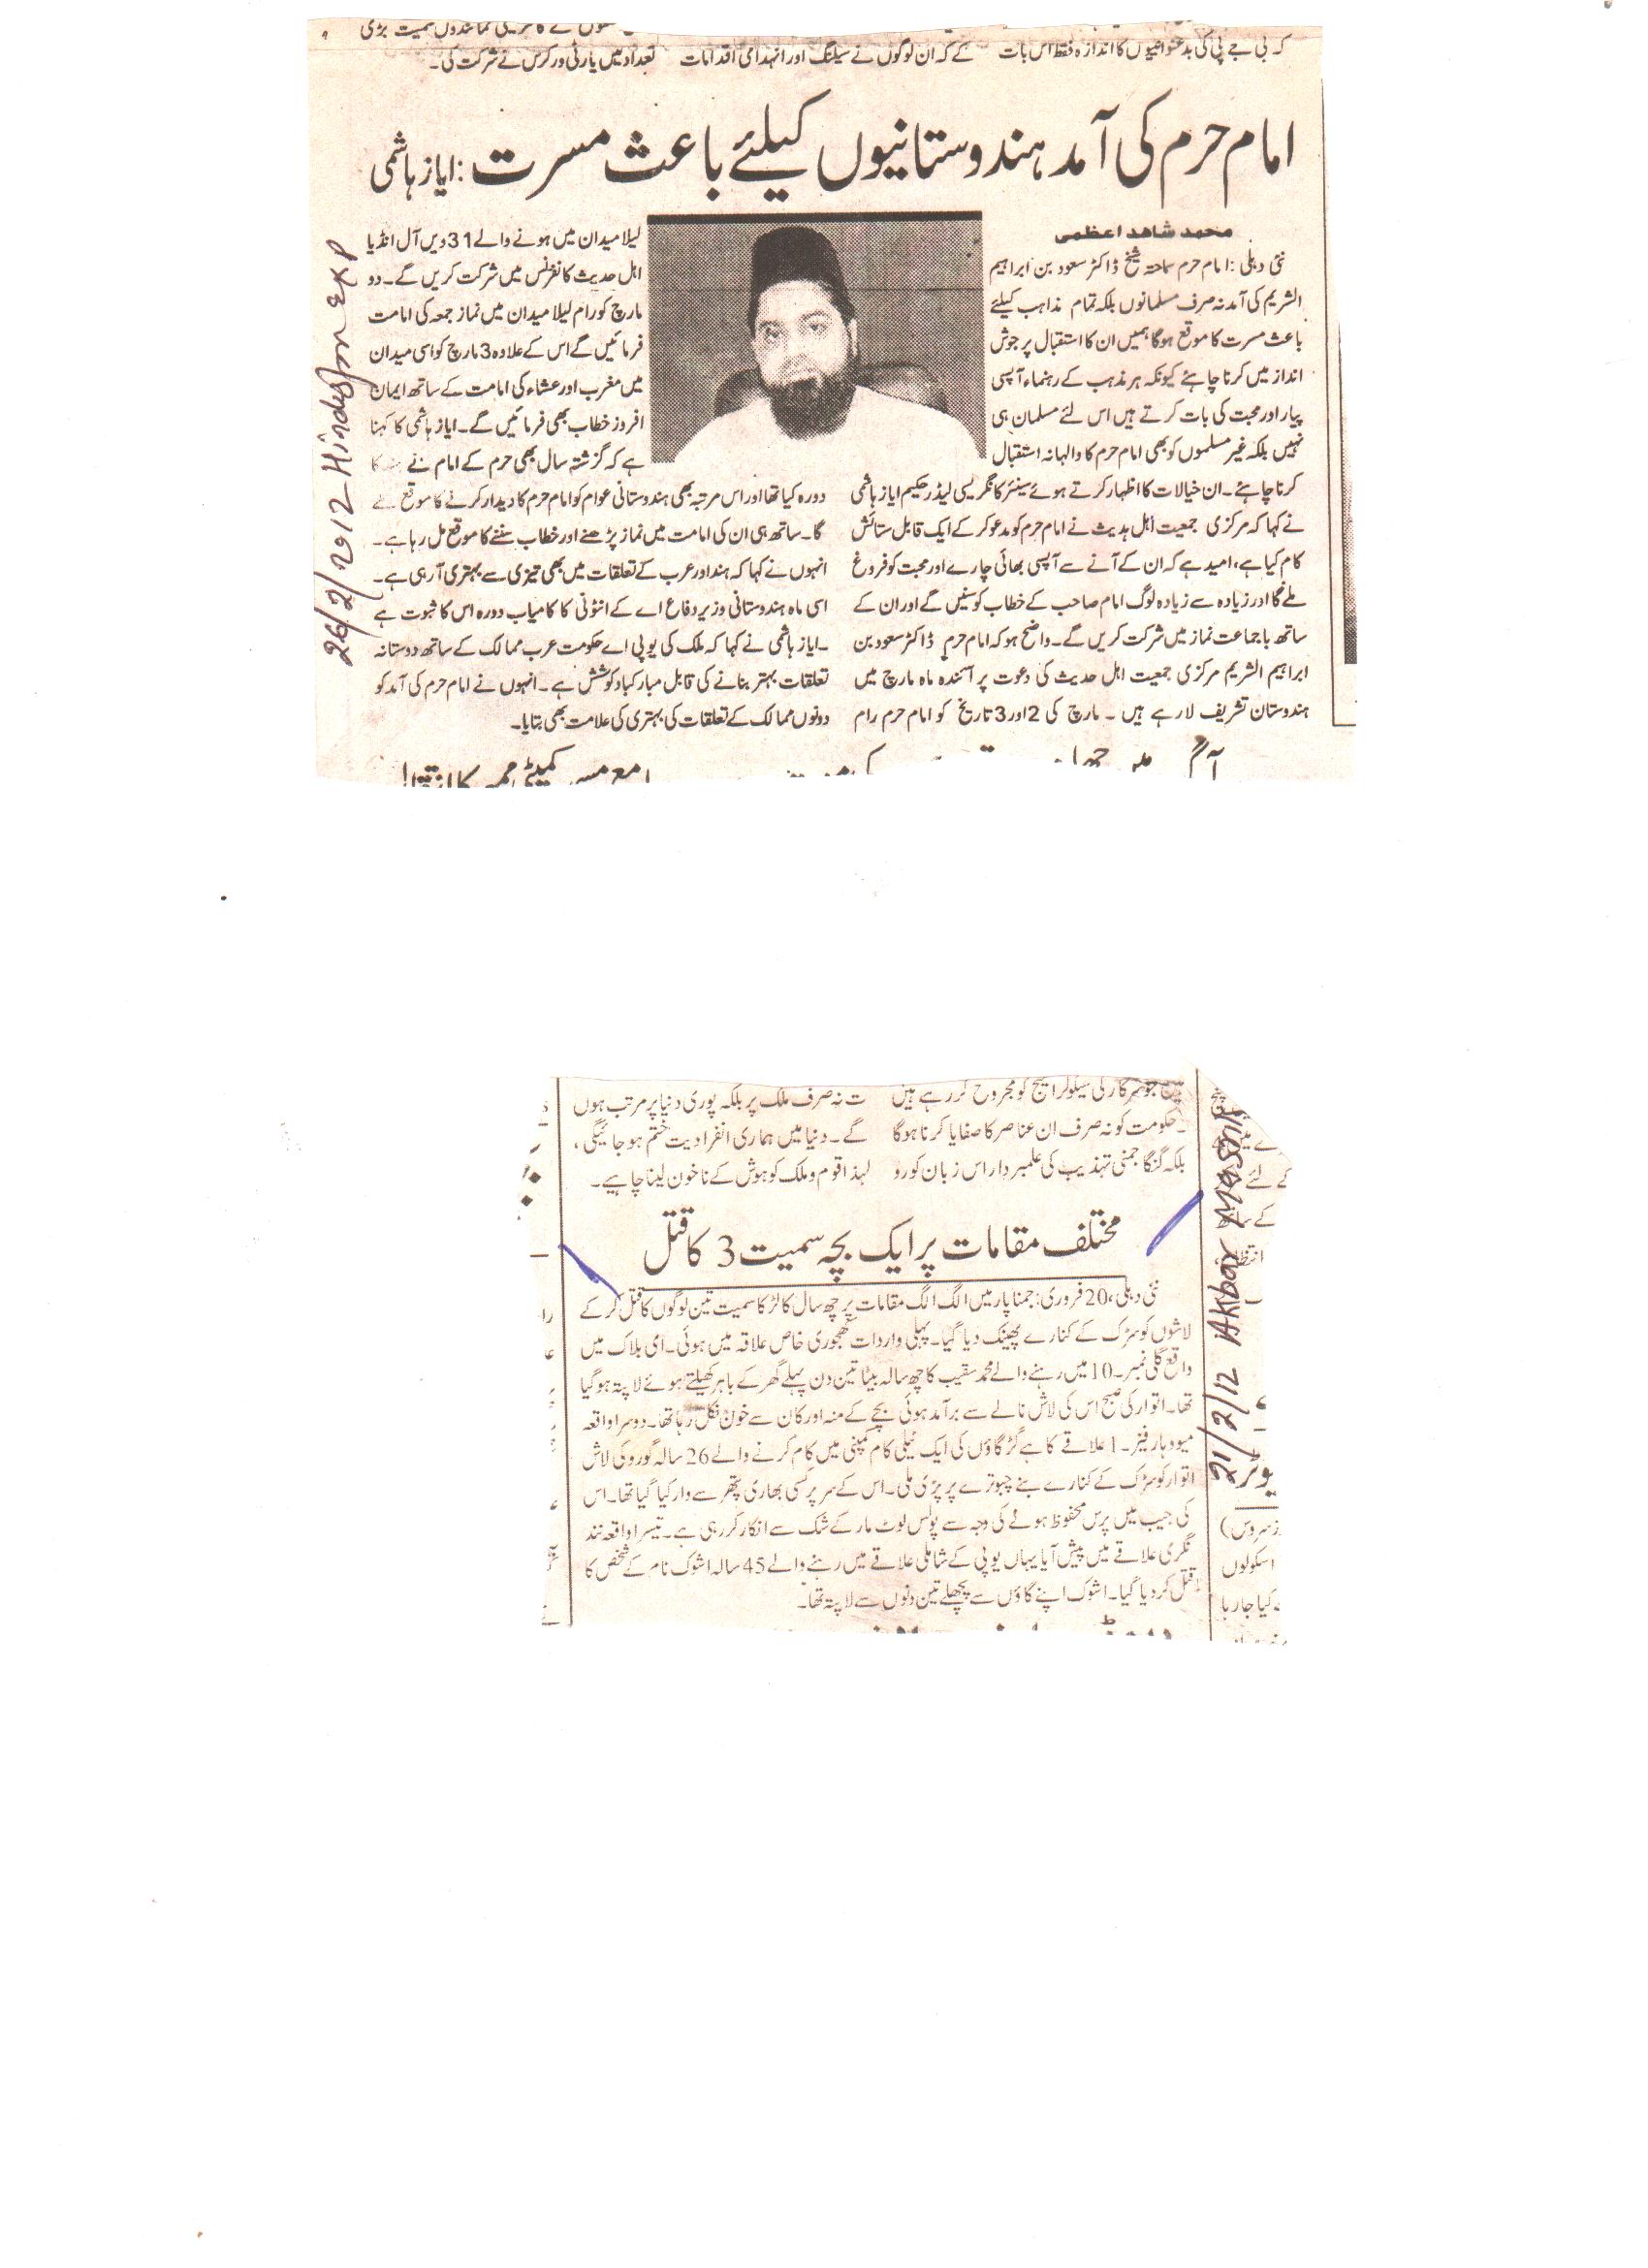 کہ بی جے پی کی بدعنوانیوں کا اندازہ فقط اس بات
کے کہ ان لوگوں نے سیلنگ اور انہدامی اقدامات
تعداد میں پارٹی ورکرس نے شرکت کی۔
امام حرم کی آمد ہندوستانیوں کیلئے باعث مسرت : ایاز ہاشمی
محمد شاہد اعظمی
نئی دہلی : امام حرم سماحتہ شیخ ڈاکٹر سعود بن ابراہیم
الشریم کی آمد نہ صرف مسلمانوں بلکہ تمام مذاہب کیلئے
باعث مسرت کا موقع ہوگا ہمیں ان کا استقبال پر جوش
انداز میں کرنا چاہئے کیونکہ ہر مذہب کے رہنماء آپسی
پیار اور محبت کی بات کرتے ہیں اس لئے مسلمان ہی
نہیں بلکہ غیر مسلموں کو بھی امام حرم کا والہانہ استقبال
کرنا چاہئے۔ ان خیالات کا اظہار کرتے ہوئے سینئر کانگریسی لیڈر حکیم ایاز ہاشمی
نے کہا کہ مرکزی جمعیت اہل ہدیث نے امام حرم کو مدعو کر کے ایک قابل ستائش
کام کیا ہے، امید ہے کہ ان کے آنے سے آپسی بھائی چارے اور محبت کو فروغ
ملے گا اور زیادہ سے زیادہ لوگ امام صاحب کے خطاب کو سنیں گے اور ان کے
ساتھ باجماعت نماز میں شرکت کریں گے۔ واضح ہو کہ امام حرم ڈاکٹر سعود بن
ابراہیم الشریم مرکزی جمعیت اہل حدیث کی دعوت پر آئندہ ماہ مارچ میں
ہندوستان تشریف لا رہے ہیں ۔ مارچ کی 2 اور 3 تاریخ کو امام حرم رام
لیلا میدان میں ہونے والے 31 ویں آل انڈیا
اہل حدیث کانفرنس میں شرکت کریں گے۔ دو
مارچ کو رام لیلا میدان میں نماز جمعہ کی امامت
فرمائیں گے اس کے علاوہ 3 مارچ کو اسی میدان
میں مغرب اور عشاء کی امامت کے ساتھ ایمان
افروز خطاب بھی فرمائیں گے۔ ایاز ہاشمی کا کہنا
ہے کہ گزشتہ سال بھی حرم کے امام نے کا
دورہ کیا تھا اور اس مرتبہ بھی ہندوستانی عوام کو امام حرم کا دیدار کرنے کا موقع ملے
گا۔ ساتھ ہی ان کی امامت میں نماز پڑھنے اور خطاب سننے کا موقع مل رہا ہے۔
انہوں نے کہا کہ ہند اور عرب کے تعلقات میں بھی تیزی سے بہتری آ رہی ہے۔
اسی ماہ ہندوستانی وزیر دفاع اے کے انٹونی کا کامیاب دورہ اس کا ثبوت ہے
۔ ایاز ہاشمی نے کہا کہ ملک کی یو پی اے حکومت عرب ممالک کے ساتھ دوستانہ
تعلقات بہتر بنانے کی قابل مبارکباد کوشش ہے۔ انہوں نے امام حرم کی آمد کو
دونوں ممالک کے تعلقات کی بہتری کی علامت بھی بتایا۔
26/2/2012 Hindustan Exp
جو سرکار کی سیکولر امیج کو مجروح کر رہے ہیں
۔ حکومت کو نہ صرف ان عناصر کا صفایا کرنا ہوگا
بلکہ گنگا جمنی تہذیب کی علمبردار اس زبان کو رو
ت نہ صرف ملک پر بلکہ پوری دنیا پر مرتب ہوں
گے۔ دنیا میں ہماری انفرادیت ختم ہو جائیگی،
لہذا قوم و ملک کو ہوش کے ناخون لینا چاہیے۔
مختلف مقامات پر ایک بچہ سمیت 3 کا قتل
نئی دہلی، 20 فروری: جمنا پار میں الگ الگ مقامات پر چھ سال کا لڑکا سمیت تین لوگوں کا قتل کر کے
لاشوں کو سڑک کے کنارے پھینک دیا گیا۔ پہلی واردات کھجوری خاص علاقہ میں ہوئی۔ ای بلاک میں
واقع گلی نمبر۔10 میں رہنے والے محمد سقیب کا چھ سالہ بیٹا تین دن پہلے گھر کے باہر کھیلتے ہوئے لاپتہ ہو گیا
تھا۔ اتوار کی صبح اس کی لاش نالے سے برآمد ہوئی بچے کے منہ اور کان سے خون نکل رہا تھا۔ دوسرا واقعہ
میو وہار فیز۔1 علاقے کا ہے گڑگاؤں کی ایک ٹیلی کام کمپنی میں کام کرنے والے 26 سالہ گورو کی لاش
اتوار کو سڑک کے کنارے بنے چبوترے پر پڑی ملی۔ اس کے سر پر کسی بھاری پتھر سے وار کیا گیا تھا۔ اس
کی جیب میں پرس محفوظ ہونے کی وجہ سے پولس لوٹ مار کے شک سے انکار کر رہی ہے۔ تیسرا واقعہ نند
نگری علاقے میں پیش آیا یہاں یو پی کے شاملی علاقے میں رہنے والے 45 سالہ اشوک نام کے شخص کا
قتل کر دیا گیا۔ اشوک اپنے گاؤں سے پچھلے تین دنوں سے لاپتہ تھا۔
21/2/12 Akbar Mashriq
کے لئے
اسکولوں
کیا جا رہا